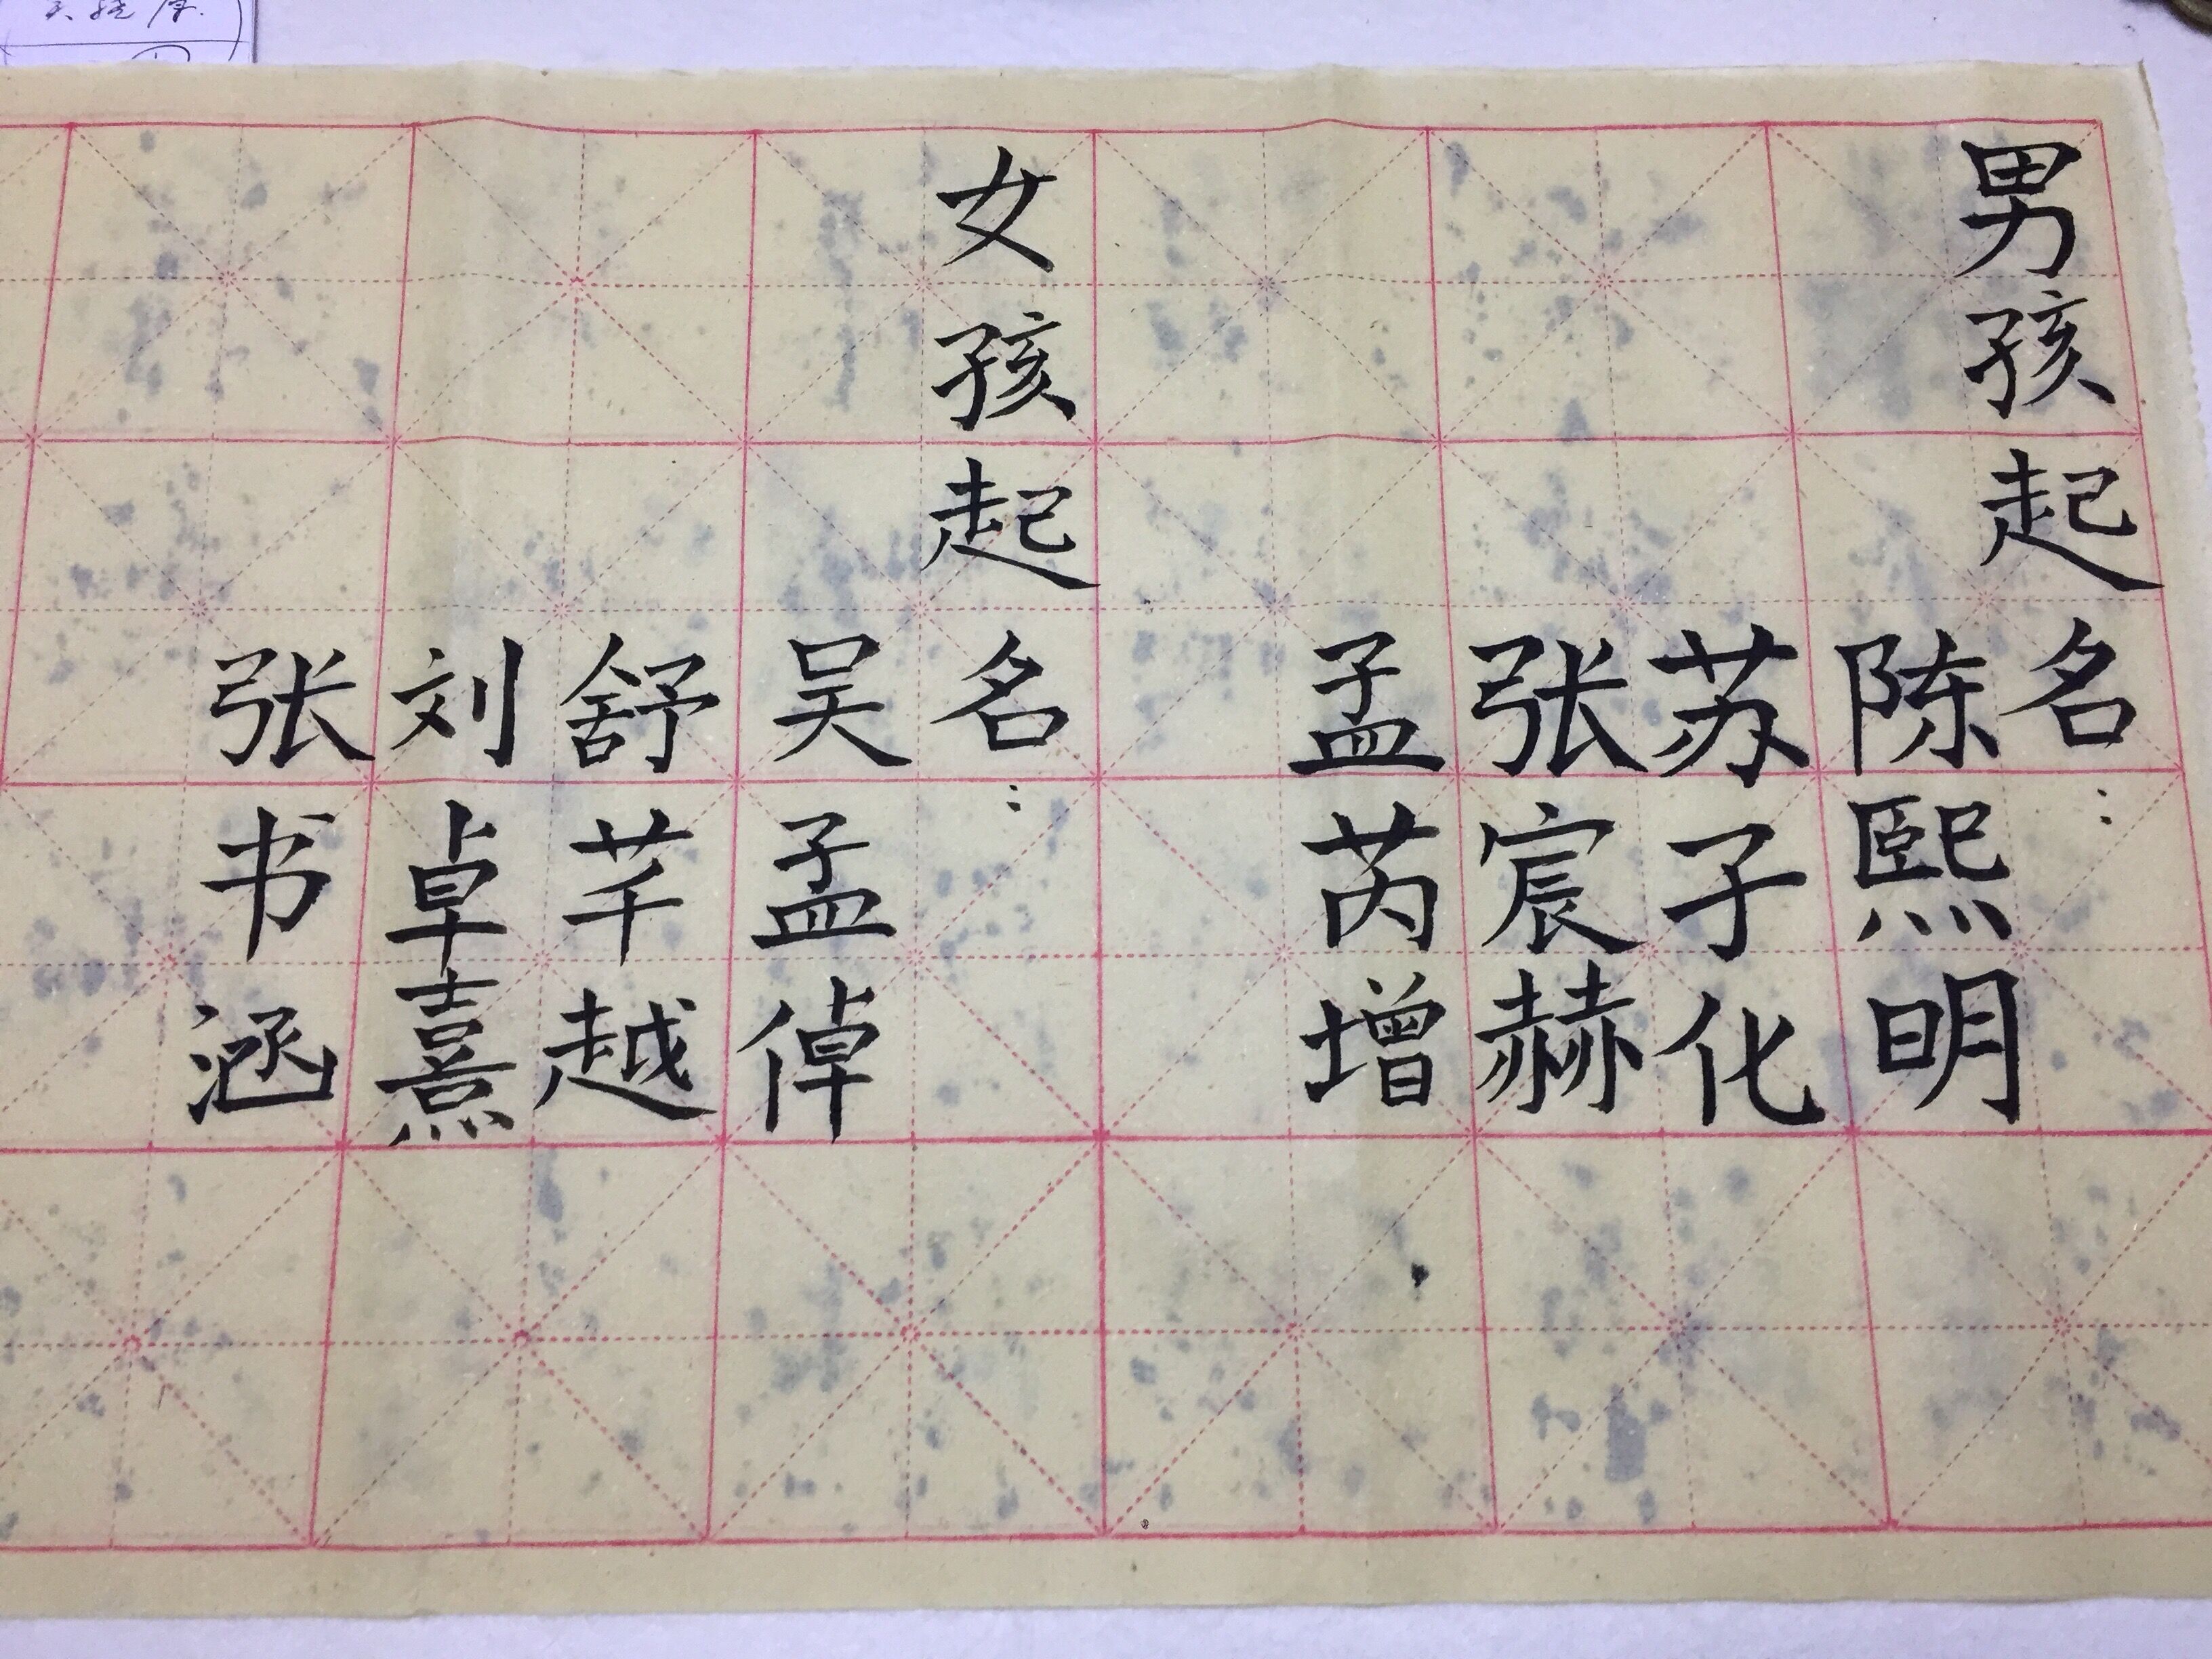 男孩起名：
陈熙明
苏子化
张宸赫
孟芮增
女孩起名：
吴孟倬
舒芊越
刘卓熹
张书涵